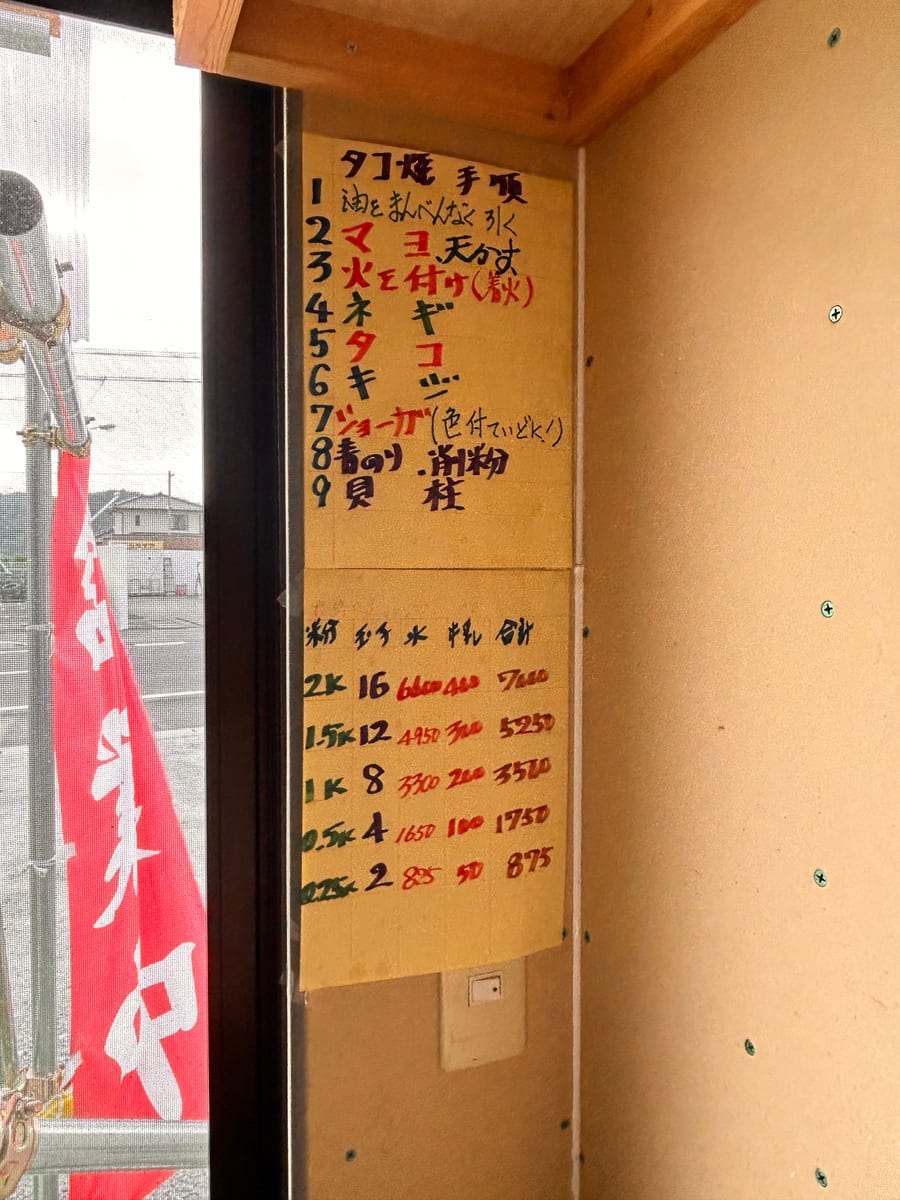 タコ焼 手順
1 油をまんべんなく引く
2 マヨ、天かす
3 火を付け(着火)
4 ネギ
5 タコ
6 キジ
7 ジョーガ(色付ていどに!)
8 青のり.削粉
9 貝柱
粉 玉子 水 牛乳 合計
2K 16 6600 400 7000
1.5K 12 4950 300 5250
1K 8 3300 200 3500
0.5K 4 1650 100 1750
0.25K 2 825 50 875
営業中